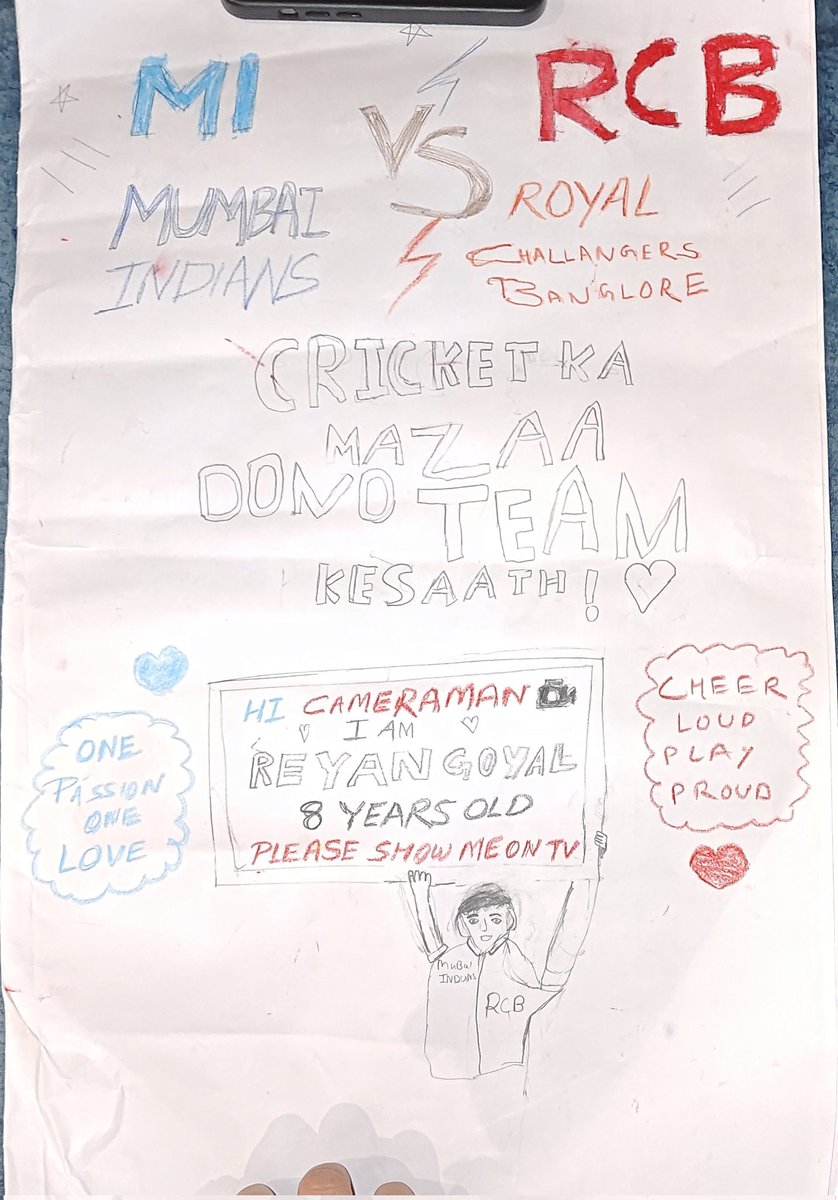 MI
VS
RCB
MUMBAI
INDIANS
ROYAL
CHALLANGERS
BANGLORE
CRICKET KA
MAZAA
DONO TEAM
KE SAATH! ♡
HI CAMERAMAN
I AM
REYAN GOYAL
8 YEARS OLD
PLEASE SHOW ME ON TV
ONE
PASSION
ONE
LOVE
CHEER
LOUD
PLAY
PROUD
RCB